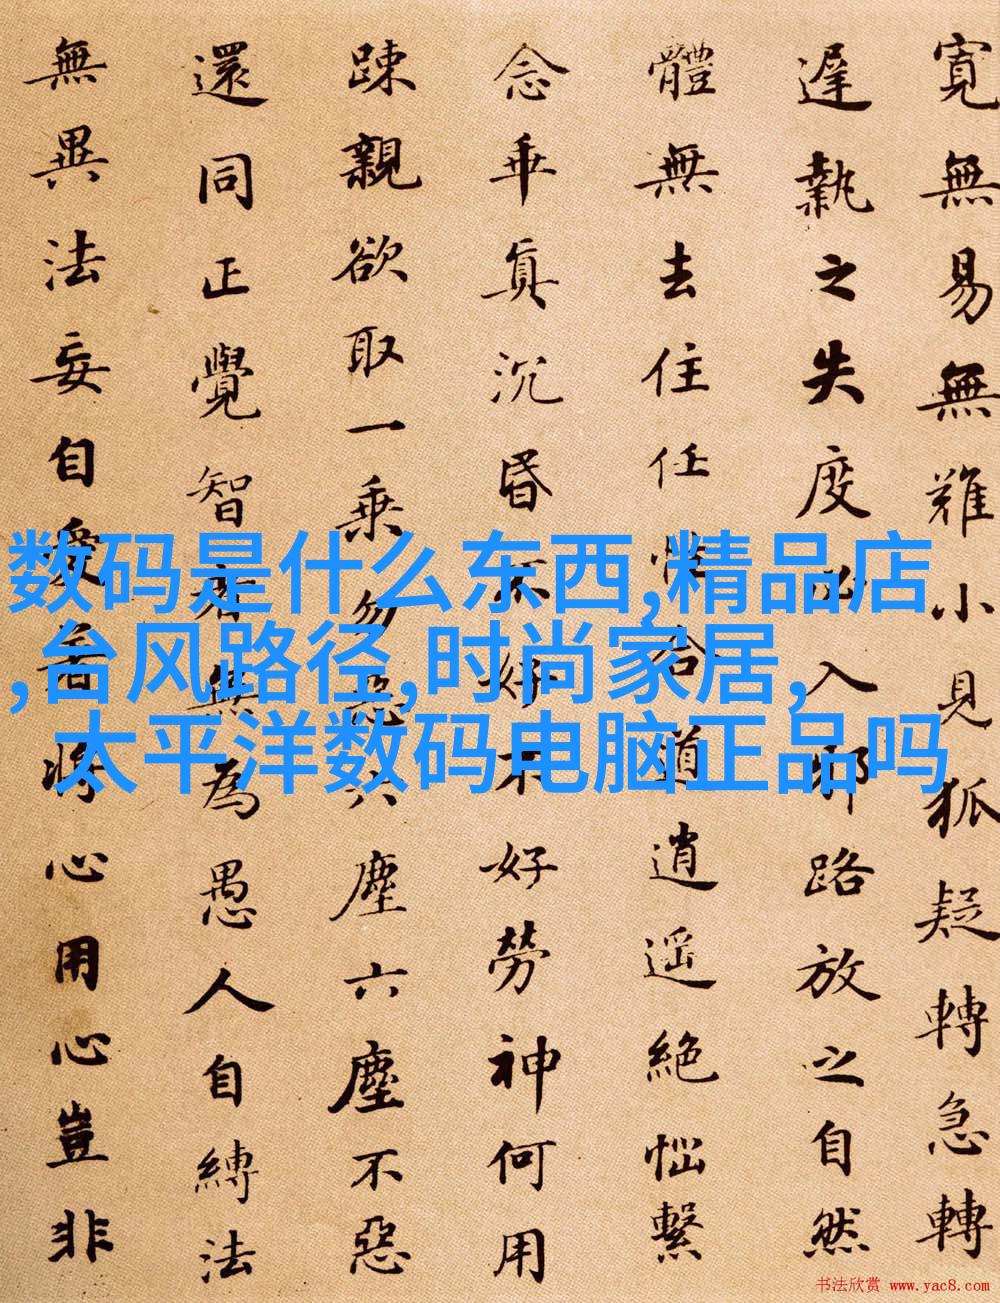 寛無易無難小見狐疑轉急轉
遲執之失度必入邪路放之自然
體無去住任性合道逍遥絶惱繫
念乖真沉昏不好不好勞神何用
踈親欲取一乗勿惡六塵六塵不惡
還同正覺智者無為愚人自縛法
無異法妄自愛著将心用心豈非
数码是什么东西,精品店
,台风路径,时尚家居,
太平洋数码电脑正品吗
书法欣赏 www.yac8.com